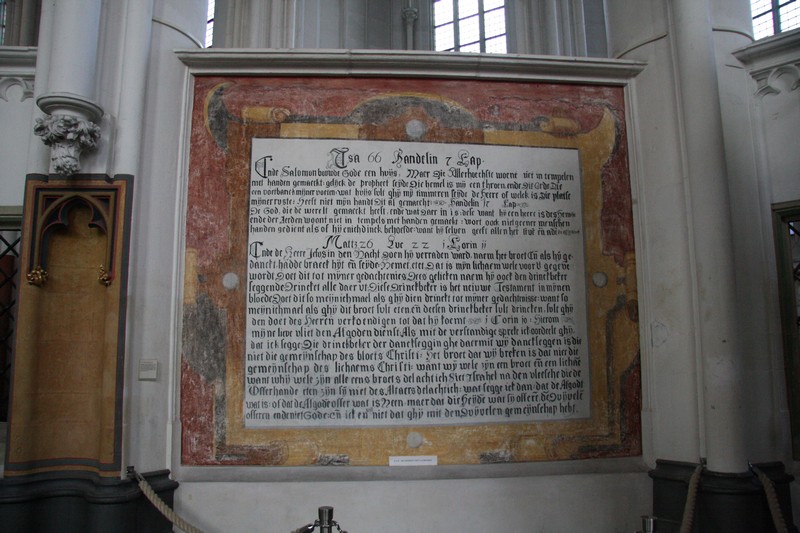 Isa 66 Handelin 7 Cap.
Ende Salomon bouwde Gode een huys: Maer die Allerhoechste woent niet in tempelen
met handen gemaeckt gelijck de prophect seyde Die hemel is mij een throen ende die Erde Die
een voetbanck mijner voeten wat huys sult ghij mij timmeren seyde de heere of welck is die plaetse
mijner ruste Heeft niet mijn handt Dit al gemacht Handelin Cap
De God, die de werelt gemaeckt heeft, ende wat daer in is dese want hij een heere is des hemels
ende der Eerden woont niet in tempels met handen gemaeckt voert oock niet geener menschen
handen gedient als of hij eenichs behoefde want hij selven geeft allen het lyve
Matt 26 Luc 22 1 Corin ij
Ende de Heere Jesus in den Nacht doen hij verraden ward nam het broet En als hij ge
danckt hadde braeckt hijt en seyde Nemet etet Dat is mijn lichaem welc voord gegeve
wordt Doet dit tot mijner gedachtenies Des gelicken nam hij oock den drinckbeter
seggende Drincket alle daer ut Diese Drinckbeter is het nieuwe Testament in mijnen
bloede Doet dit so menichmael als ghij dien drinckt tot mijner gedachtnisse want so
menichmael als ghij dit broet sult eten en desen drinckbeter sult drincken sult ghij
den doet des Heeren verkondigen tot dat hij komt i Corin io
mijne lieve vliet den Afgoden dienst Als mit de verstandige spreck ick oordeelt ghij
dat ick segge Die drinckbeter der dancksegginghe daermit wij dancksegge is die
niet die gemeynschap des bloets Christi Het broet dat wij breken is dat niet die
gemeynschap des lichaems Christi want wij vele zijn een broet en een lichaem
want wij vele zijn alle eens broets delachtich Siet Israhel na den vleische die de
Offerhande eten zijn sij niet des Altaers delachtich wat segge ick dan dat de Afgodt
wat is of dat de Afgoden offer wat is Neen maer dat die heyde wat sij offere de Duyvele
offeren en den niet Gode En ick en wil niet dat ghij mit den Duyvelen gemeynschap hebt